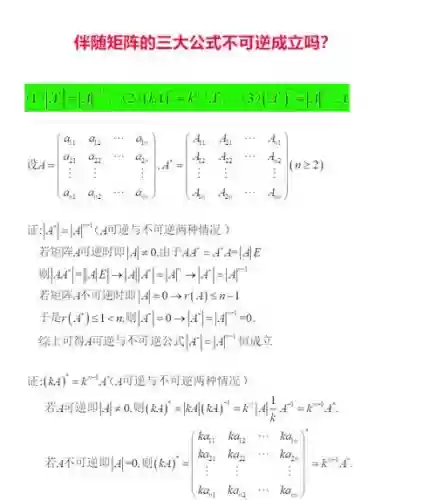 伴随矩阵的三大公式不可逆成立吗?
(1)|A*|=|A|ⁿ⁻¹ (2)(kA)*=kⁿ⁻¹A* (3)(A*)*=|A|ⁿ⁻²A
设A= ( a₁₁ a₁₂ ⋯ a₁ₙ ; a₂₁ a₂₂ ⋯ a₂ₙ ; ⋮ ⋮ ⋮ ; aₙ₁ aₙ₂ ⋯ aₙₙ ) , A*= ( A₁₁ A₂₁ ⋯ Aₙ₁ ; A₁₂ A₂₂ ⋯ Aₙ₂ ; ⋮ ⋮ ⋮ ; A₁ₙ A₂ₙ ⋯ Aₙₙ ) (n≥2)
证:|A*|=|A|ⁿ⁻¹(A可逆与不可逆两种情况)
若矩阵A可逆时即|A|≠0,由于AA*=A*A=|A|E
则|AA*|=||A|E|→|A||A*|=|A|ⁿ→|A*|=|A|ⁿ⁻¹
若矩阵A不可逆时即|A|=0→r(A)≤n-1
于是r(A*)≤1<n,则|A*|=0→|A*|=|A|ⁿ⁻¹=0.
综上可得A可逆与不可逆公式|A*|=|A|ⁿ⁻¹恒成立
证:(kA)*=kⁿ⁻¹A*(A可逆与不可逆两种情况)
若A可逆即|A|≠0,则(kA)*=|kA|(kA)⁻¹=kⁿ|A|1/k A⁻¹=kⁿ⁻¹A*.
若A不可逆即|A|=0,则(kA)*= ( ka₁₁ ka₁₂ ⋯ ka₁ₙ ; ka₂₁ ka₂₂ ⋯ ka₂ₙ ; ⋮ ⋮ ⋮ ; kaₙ₁ kaₙ₂ ⋯ kaₙₙ )* =kⁿ⁻¹A*.